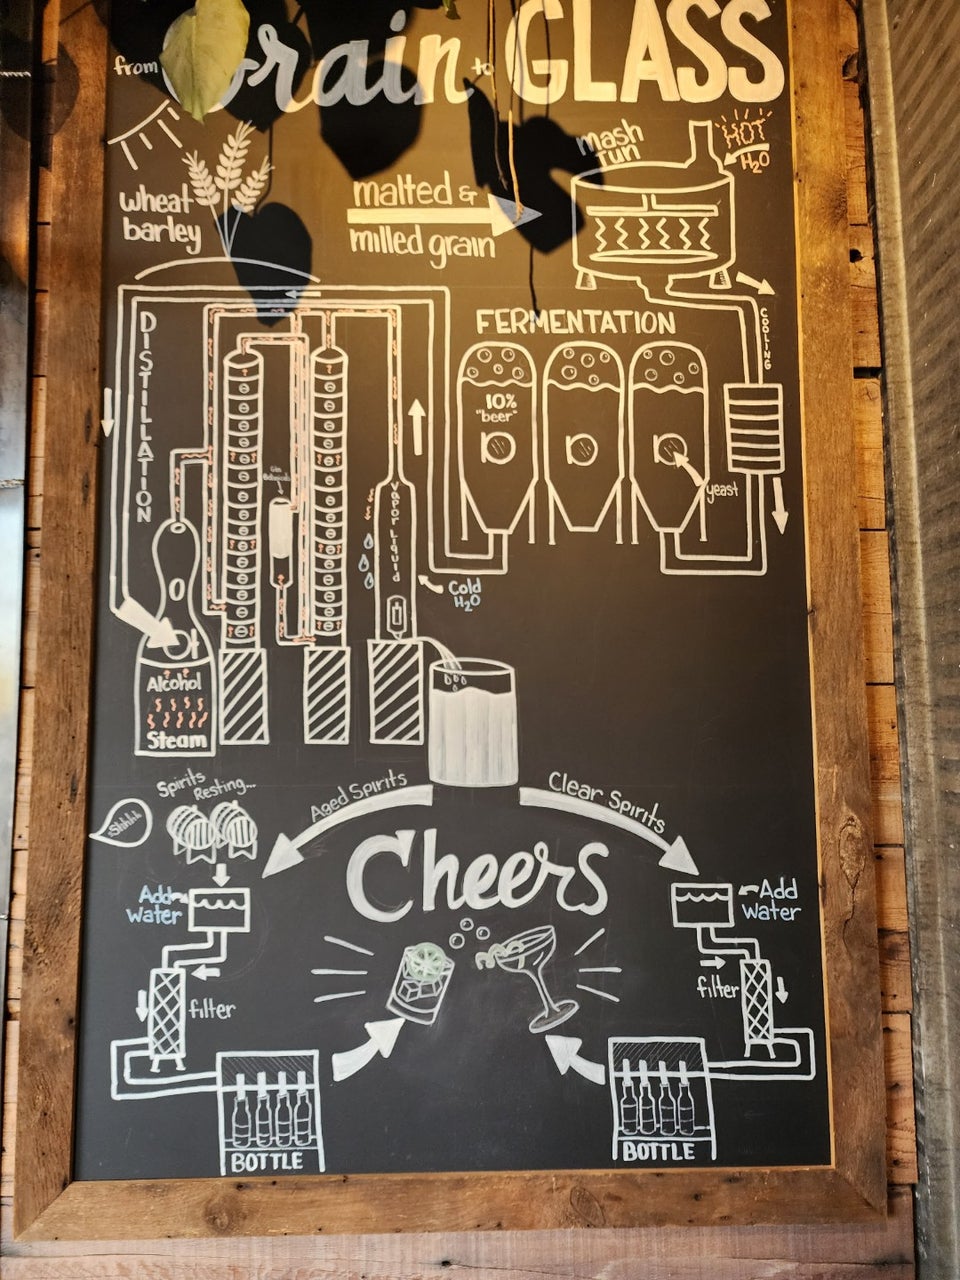 from Grain to GLASS
wheat
barley
malted &
milled grain
mash
tun
HOT
H₂O
COOLING
FERMENTATION
10%
"beer"
yeast
DISTILLATION
Gin
Botanicals
Vapor Liquid
Cold
H₂O
Alcohol
Steam
Spirits
Resting...
Shhhh
Aged Spirits
Clear Spirits
Cheers
Add
water
filter
BOTTLE
Add
water
filter
BOTTLE